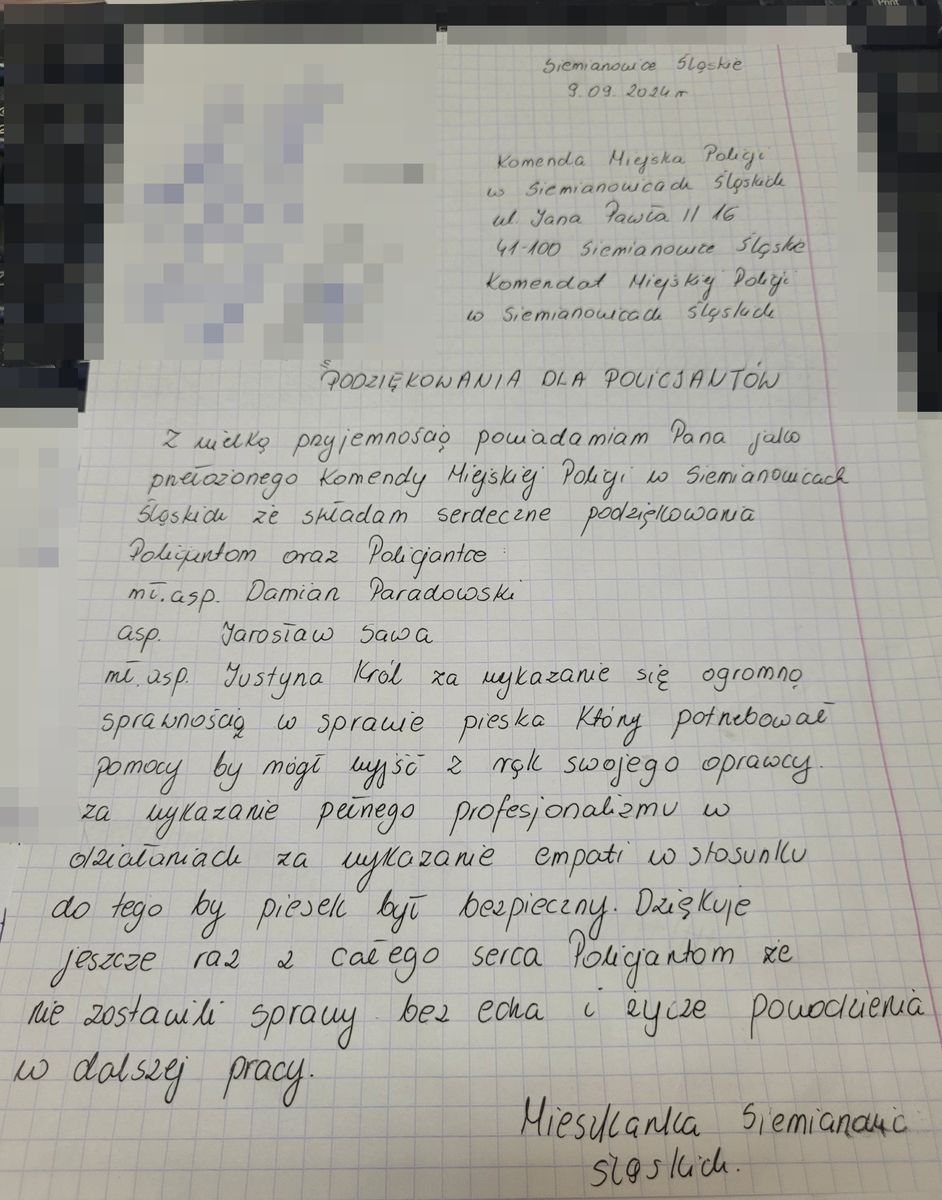 Siemianowice Śląskie
9.09.2024r
Komenda Miejska Policji
w Siemianowicach Śląskich
ul. Jana Pawła II 16
41-100 Siemianowice Śląskie
Komendat Miejskiej Policji
w Siemianowicach Śląskich
PODZIĘKOWANIA DLA POLICJANTÓW
Z wielką przyjemnością powiadamiam Pana jako
przełożonego Komendy Miejskiej Policji w Siemianowicach
Śląskich że składam serdeczne podziękowania
Policjantom oraz Policjantce :
mł.asp. Damian Paradowski
asp. Jarosław Sawa
mł.asp. Justyna Król za wykazanie się ogromną
sprawnością w sprawie pieska który potrzebował
pomocy by mógł wyjść z rąk swojego oprawcy.
za wykazanie pełnego profesjonalizmu w
działaniach za wykazanie empati w stosunku
do tego by piesek był bezpieczny. Dziękuje
jeszcze raz z całego serca Policjantom że
nie zostawili sprawy bez echa i życze powodzienia
w dalszej pracy.
Mieszkanka Siemianowic
Śląskich.